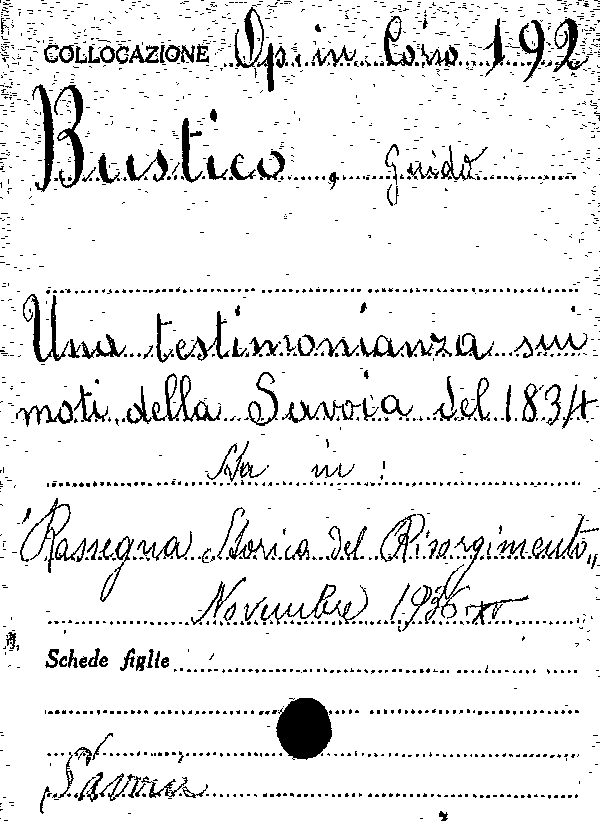 COLLOCAZIONE Op. in Coro 192
Bustico, Guido
Una testimonianza sui
moti della Savoia del 1834
Sta in:
"Rassegna Storica del Risorgimento"
Novembre 1936-XV
Schede figlie
Savoia